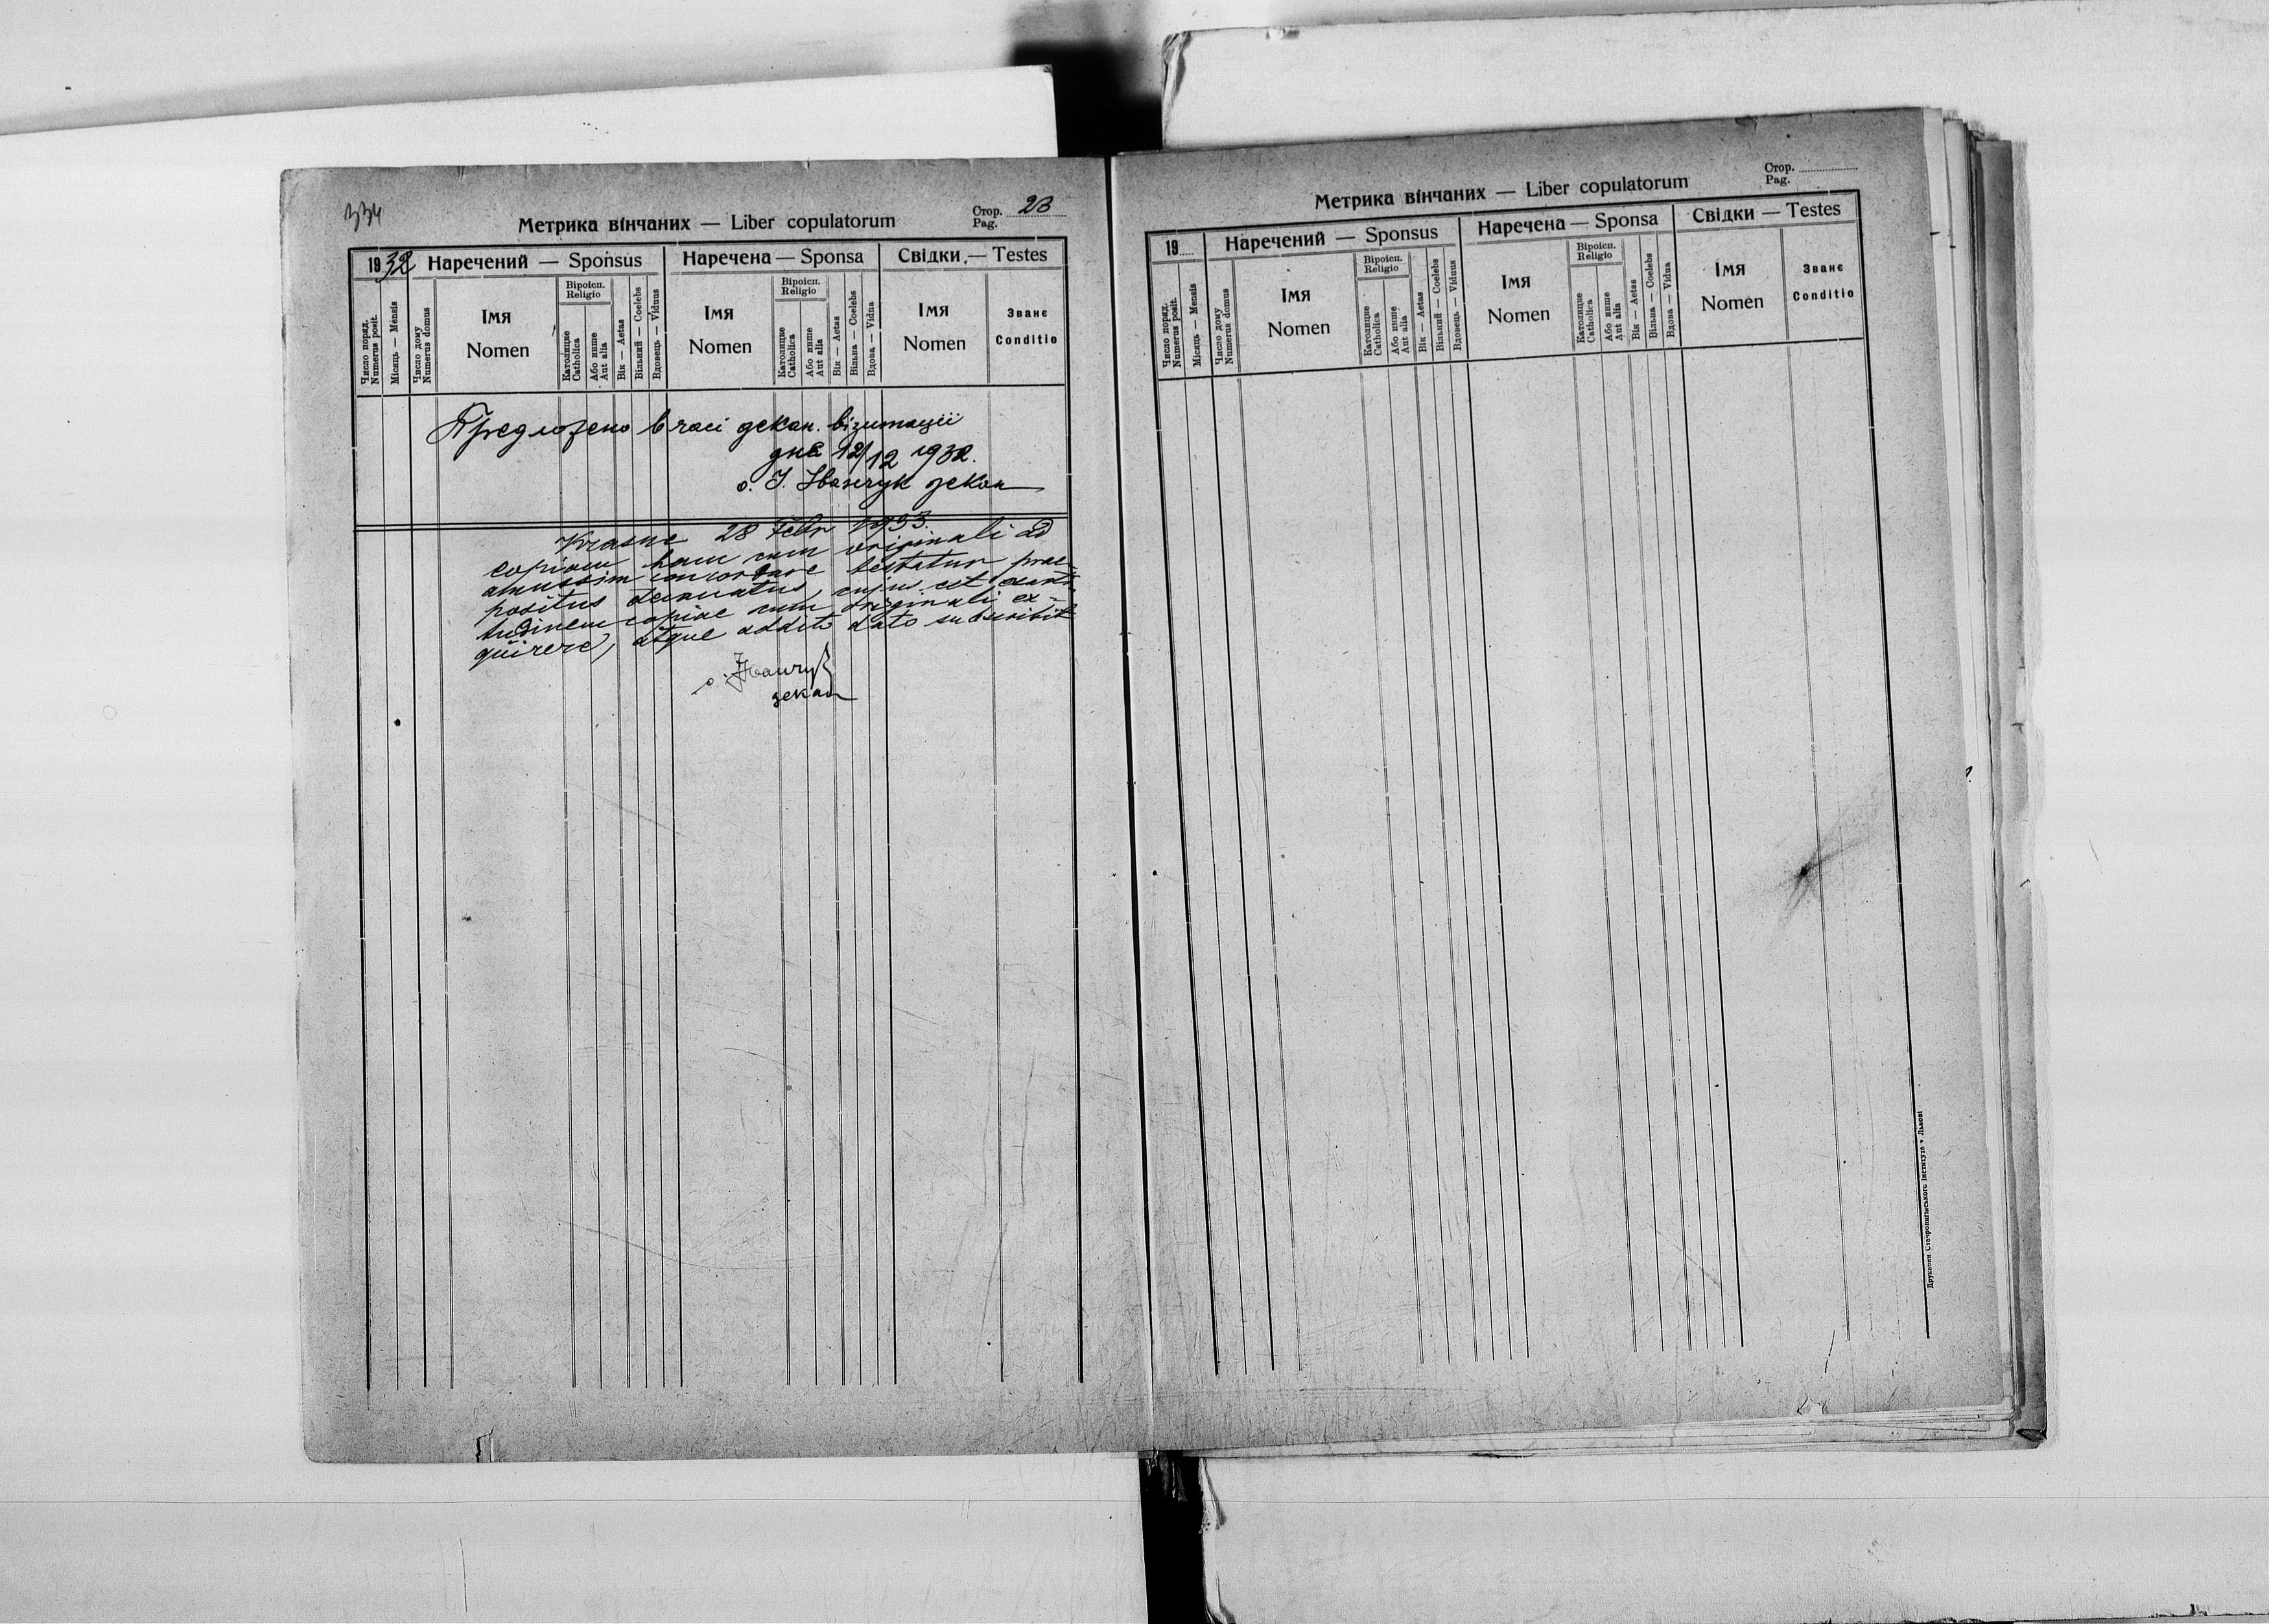 334
Метрика вінчаних — Liber copulatorum
Стор. 23
Pag.
1932
Наречений — Sponsus
Наречена — Sponsa
Свідки — Testes
Число поряд.
Numerus posit.
Місяць — Mensis
Число дому
Numerus domus
Імя
Nomen
Віроісп.
Religio
Католицке
Catholica
Або инше
Aut alia
Вік — Aetas
Вільний — Coelebs
Вдовець — Viduus
Імя
Nomen
Віроісп.
Religio
Католицке
Catholica
Або инше
Aut alia
Вік — Aetas
Вільна — Coelebs
Вдова — Vidua
Імя
Nomen
Званє
Conditio
Предложено в часі декан. візитації
дня 12/12 1932.
о. І. Іванчук декан
Krasne 28 Febr 1933.
copiam hanc cum originali ad
amussim concordare testatur prae-
positus decanatus, cujus est
copiae cum originali ex-
quirere, atque addito dato subscribit
о. Іванчук
декан
Метрика вінчаних — Liber copulatorum
Стор.
Pag.
19
Наречений — Sponsus
Наречена — Sponsa
Свідки — Testes
Число поряд.
Numerus posit.
Місяць — Mensis
Число дому
Numerus domus
Імя
Nomen
Віроісп.
Religio
Католицке
Catholica
Або инше
Aut alia
Вік — Aetas
Вільний — Coelebs
Вдовець — Viduus
Імя
Nomen
Віроісп.
Religio
Католицке
Catholica
Або инше
Aut alia
Вік — Aetas
Вільна — Coelebs
Вдова — Vidua
Імя
Nomen
Званє
Conditio
Друкарня Ставропигійського Інститута у Львові